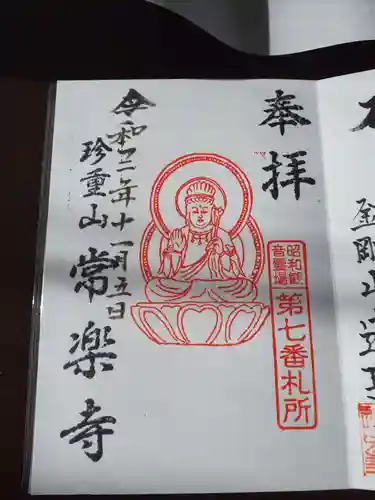 奉拝
昭和新
音霊場
第七番札所
令和二年十一月五日
珍重山
常楽寺
金剛山